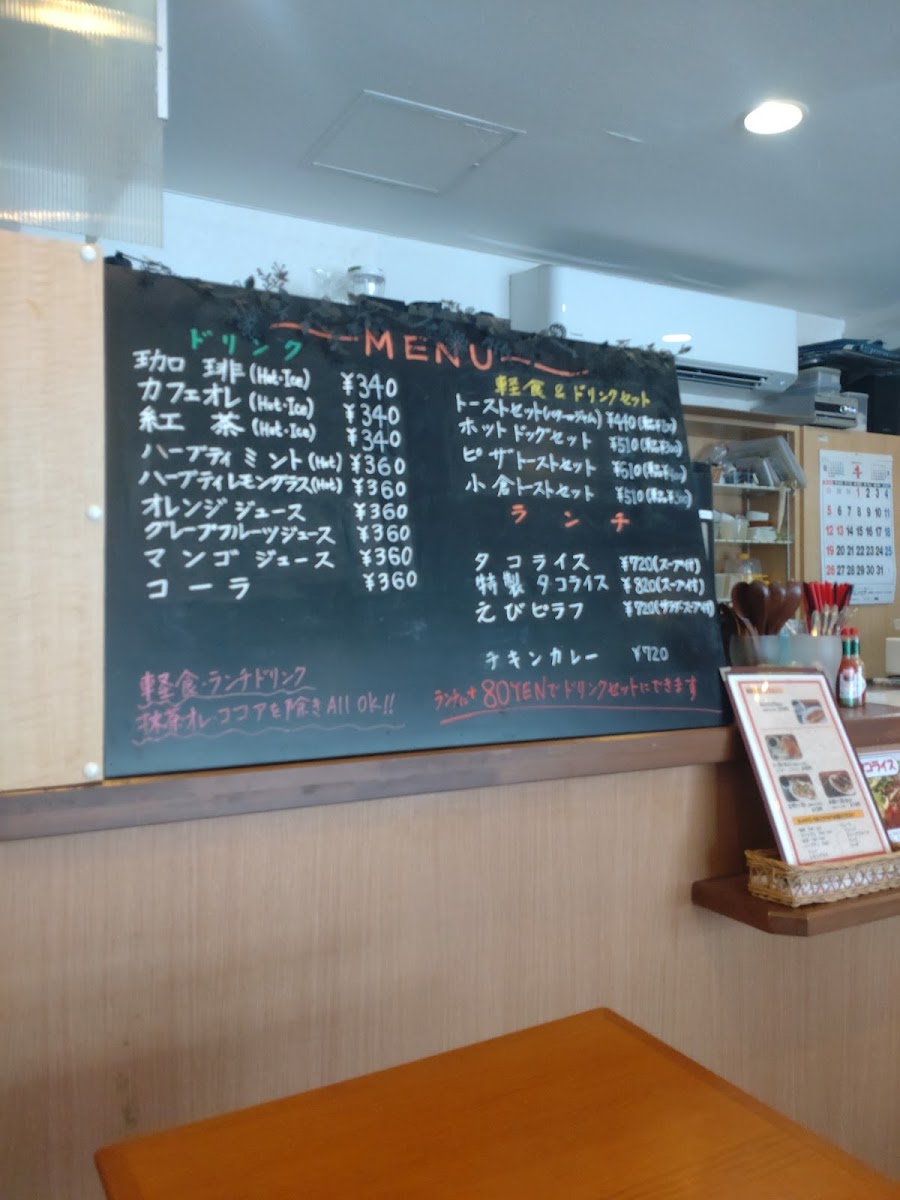 MENU
ドリンク
珈琲(Hot・Ice) ¥340
カフェオレ(Hot・Ice) ¥340
紅茶(Hot・Ice) ¥340
ハーブティミント(Hot) ¥360
ハーブティレモングラス(Hot) ¥360
オレンジジュース ¥360
グレープフルーツジュース ¥360
マンゴジュース ¥360
コーラ ¥360
軽食・ランチドリンク
抹茶オレ・ココアを除きAll OK!!
軽食&ドリンクセット
トーストセット ¥440
ホットドッグセット ¥510
ピザトーストセット ¥510
小倉トーストセット ¥510
ランチ
タコライス ¥720(スープ付)
特製タコライス ¥820(スープ付)
えびピラフ ¥720(サラダ・スープ付)
チキンカレー ¥720
80YENでドリンクセットにできます
4
1 2 3 4
5 6 7 8 9 10 11
12 13 14 15 16 17 18
19 20 21 22 23 24 25
26 27 28 29 30
コライス